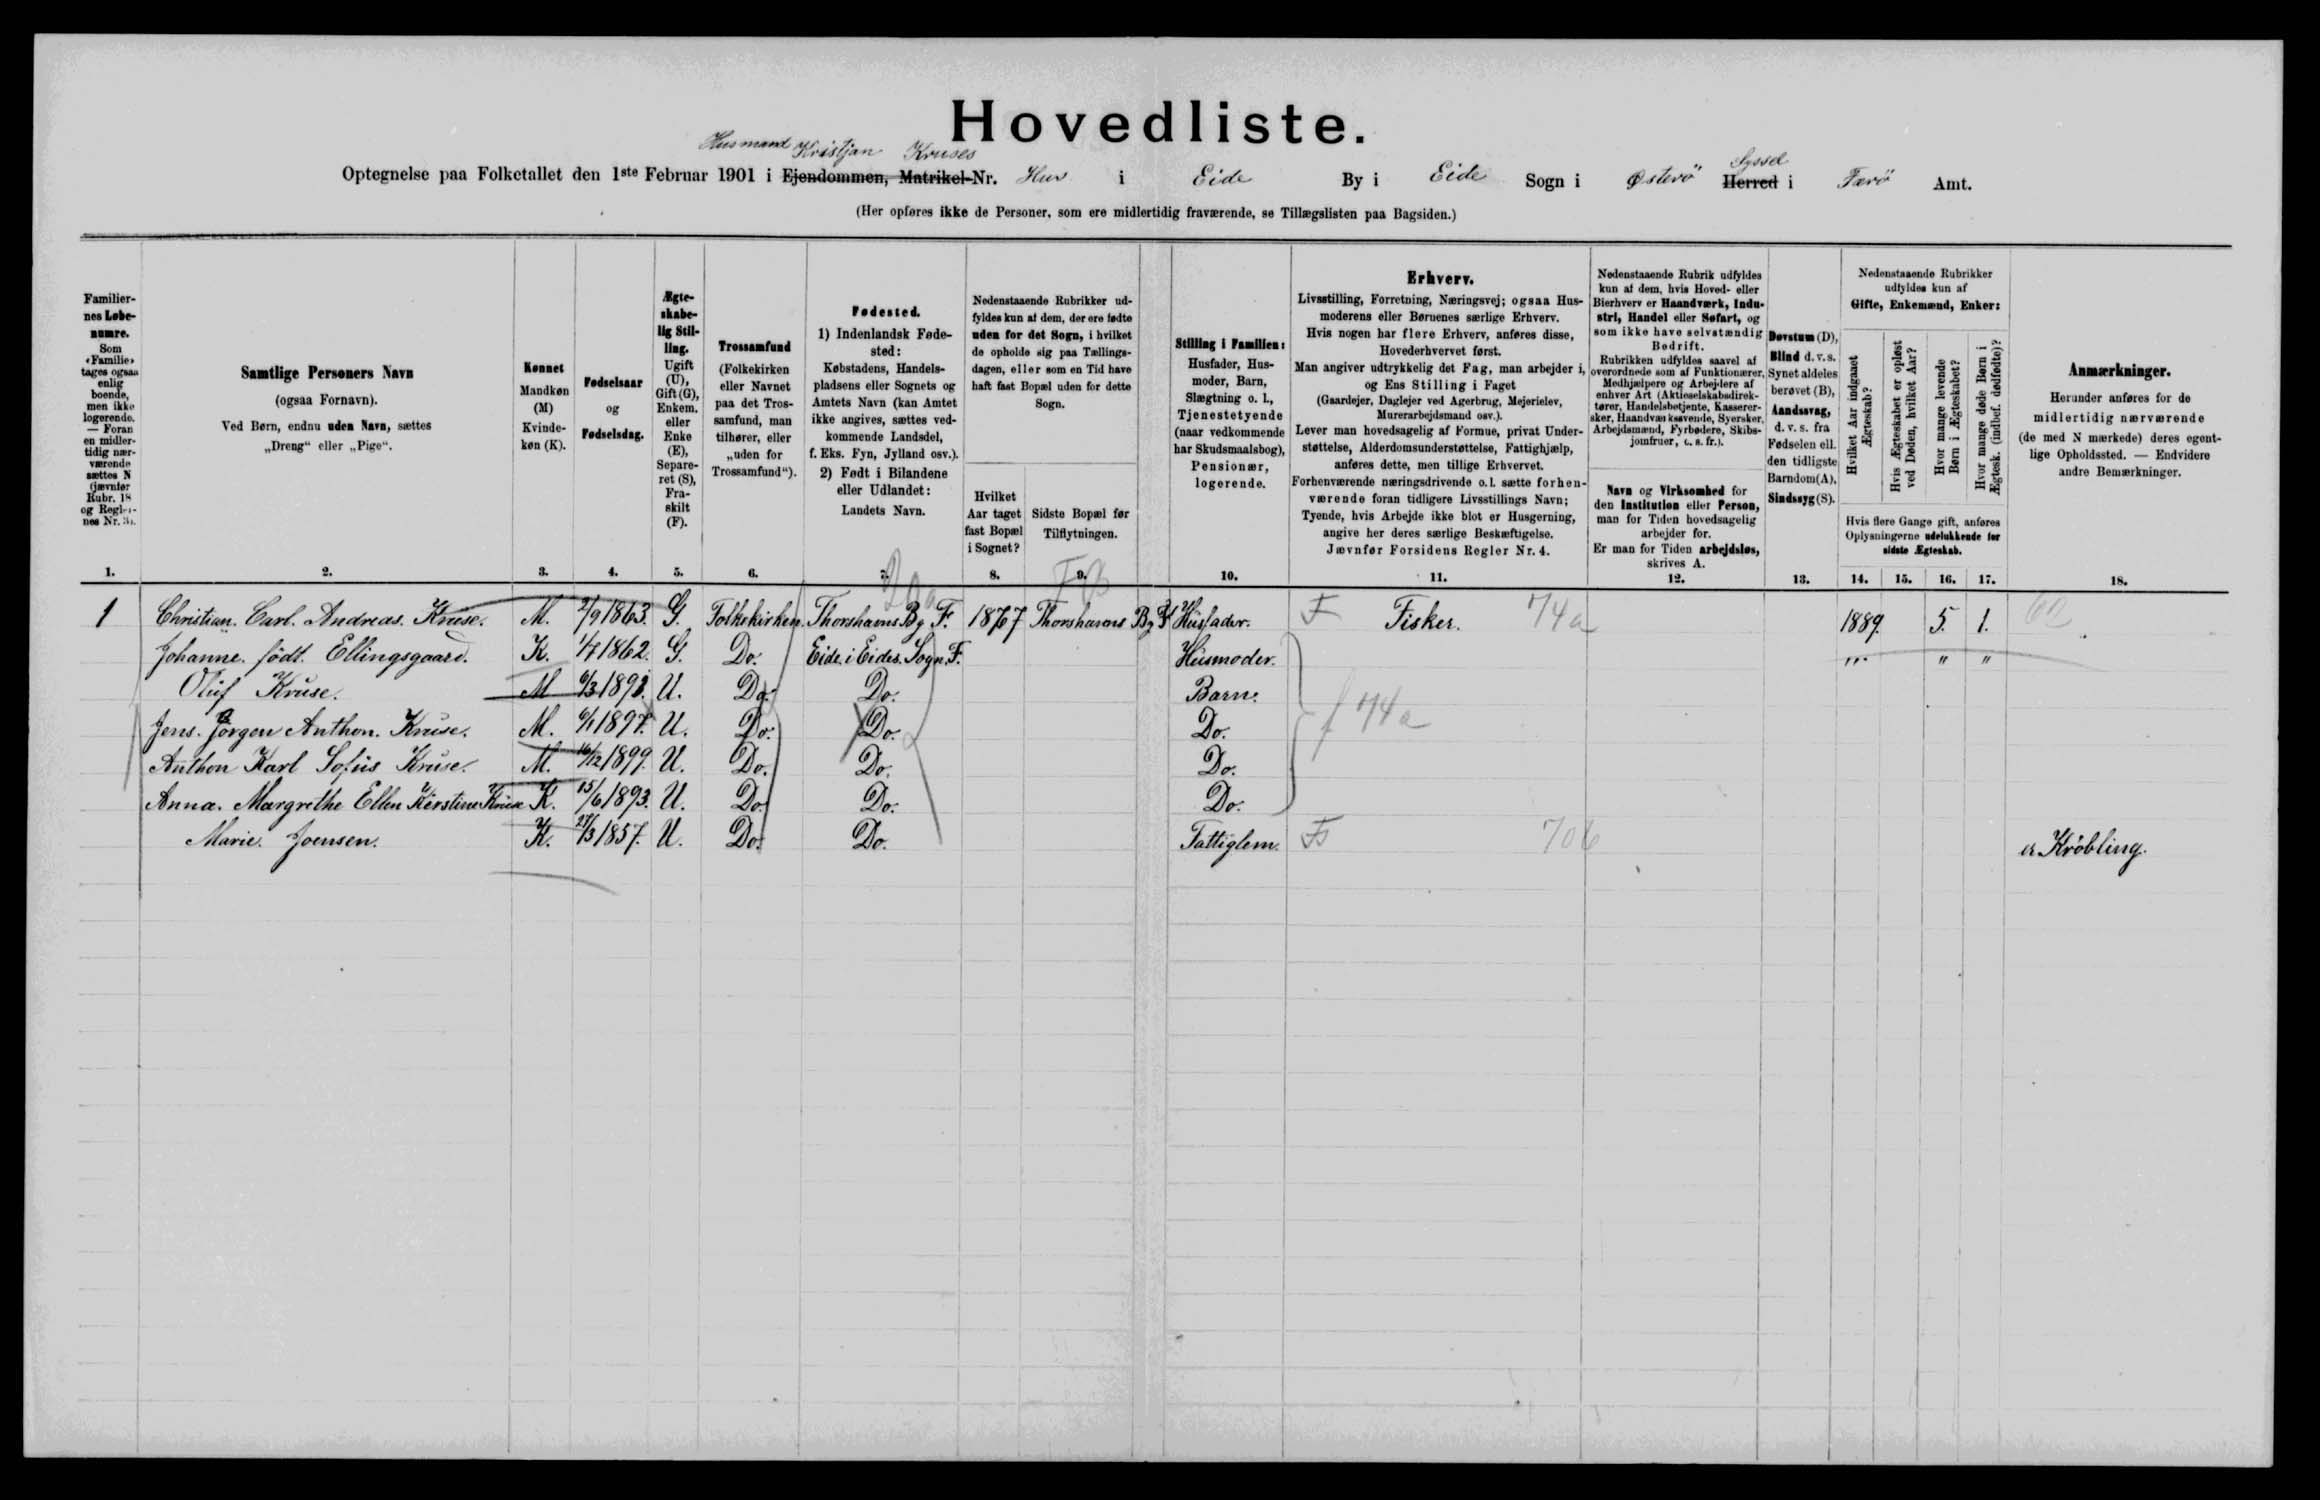 Hovedliste.
Husmand Kristjan Kruses
Syssel
Optegnelse paa Folketallet den 1ste Februar 1901 i Ejendommen, Matrikel-Nr. Hus i Eide By i Eide Sogn i Østerö Herred i Færö Amt.
(Her opføres ikke de Personer, som ere midlertidig fraværende, se Tillægslisten paa Bagsiden.)
Familier-
nes Løbe-
numre.
Som
«Familie»
tages ogsaa
enlig
boende,
men ikke
logerende.
— Foran
en midler-
tidig nær-
værende
sættes N
(jævnfør
Rubr. 18
og Regler-
nes Nr. 3).
Samtlige Personers Navn
(ogsaa Fornavn).
Ved Børn, endnu uden Navn, sættes
„Dreng" eller „Pige".
Kønnet
Mandkøn
(M)
Kvinde-
køn (K).
Fødselsaar
og
Fødselsdag.
Ægte-
skabe-
lig Stil-
ling.
Ugift
(U),
Gift (G),
Enkem.
eller
Enke
(E),
Separe-
ret (S),
Fra-
skilt
(F).
Trossamfund
(Folkekirken
eller Navnet
paa det Tros-
samfund, man
tilhører, eller
„uden for
Trossamfund").
Fødested.
1) Indenlandsk Føde-
sted:
Købstadens, Handels-
pladsens eller Sognets og
Amtets Navn (kan Amtet
ikke angives, sættes ved-
kommende Landsdel,
f. Eks. Fyn, Jylland osv.).
2) Født i Bilandene
eller Udlandet:
Landets Navn.
Nedenstaaende Rubrikker ud-
fyldes kun af dem, der ere fødte
uden for det Sogn, i hvilket
de opholde sig paa Tællings-
dagen, eller som en Tid have
haft fast Bopæl uden for dette
Sogn.
Hvilket
Aar taget
fast Bopæl
i Sognet?
Sidste Bopæl før
Tilflytningen.
Stilling i Familien:
Husfader, Hus-
moder, Barn,
Slægtning o. l.,
Tjenestetyende
(naar vedkommende
har Skudsmaalsbog),
Pensionær,
logerende.
Erhverv.
Livsstilling, Forretning, Næringsvej; ogsaa Hus-
moderens eller Børnenes særlige Erhverv.
Hvis nogen har flere Erhverv, anføres disse,
Hovederhvervet først.
Man angiver udtrykkelig det Fag, man arbejder i,
og Ens Stilling i Faget
(Gaardejer, Daglejer ved Agerbrug, Mejerielev,
Murerarbejdsmand osv.).
Lever man hovedsagelig af Formue, privat Under-
støttelse, Alderdomsunderstøttelse, Fattighjælp,
anføres dette, men tillige Erhvervet.
Forhenværende næringsdrivende o. l. sætte forhen-
værende foran tidligere Livsstillings Navn;
Tyende, hvis Arbejde ikke blot er Husgerning,
angive her deres særlige Beskæftigelse.
Jævnfør Forsidens Regler Nr. 4.
Nedenstaaende Rubrik udfyldes
kun af dem, hvis Hoved- eller
Bierhverv er Haandværk, Indu-
stri, Handel eller Søfart, og
som ikke have selvstændig
Bedrift.
Rubrikken udfyldes saavel af
overordnede som af Funktionærer,
Medhjælpere og Arbejdere af
enhver Art (Aktieselskabsdirek-
tører, Handelsbetjente, Kasserer-
sker, Haandværkssvende, Syersker,
Arbejdsmænd, Fyrbødere, Skibs-
jomfruer, o. s. fr.).
Navn og Virksomhed for
den Institution eller Person,
man for Tiden hovedsagelig
arbejder for.
Er man for Tiden arbejdsløs,
skrives A.
Døvstum (D),
Blind d. v. s.
Synet aldeles
berøvet (B),
Aandssvag,
d. v. s. fra
Fødselen ell.
den tidligste
Barndom(A),
Sindssyg (S).
Nedenstaaende Rubrikker
udfyldes kun af
Gifte, Enkemænd, Enker:
Hvilket Aar indgaaet
Ægteskab?
Hvis Ægteskabet er opløst
ved Døden, hvilket Aar?
Hvor mange levende
Børn i Ægteskabet?
Hvor mange døde Børn i
Ægtesk. (indbef. dødfødte)?
Hvis flere Gange gift, anføres
Oplysningerne udelukkende for
sidste Ægteskab.
Anmærkninger.
Herunder anføres for de
midlertidig nærværende
(de med N mærkede) deres egent-
lige Opholdssted. — Endvidere
andre Bemærkninger.
1. 2. 3. 4. 5. 6. 7. 8. 9. 10. 11. 12. 13. 14. 15. 16. 17. 18.
1 Christian. Carl. Andreas. Kruse. M. 2/9 1863. G. Folkekirken. Thorshavns By F. 1867 Thorshavns By F Husfader. F Fisker. 74a 1889. 5. 1.
Johanne. födt. Ellingsgaard. K. 1/7 1862. G. Do. Eide i Eides. Sogn. F. Husmoder. "" " "
Oluf Kruse. M 6/3 1891. U. Do. Do. Barn.
Jens. Jörgen Anthon. Kruse. M. 6/1 1897. U. Do. Do. Do. f 74a
Anthon Karl Sofus Kruse. M. 16/12 1899. U. Do. Do. Do.
Anna. Margrethe Ellen Kirstine Kruse K. 15/6 1893. U. Do. Do. Do.
Marie. Joensen. K. 27/3 1857. U. Do. Do. Fattiglem. 706 er Kröbling.